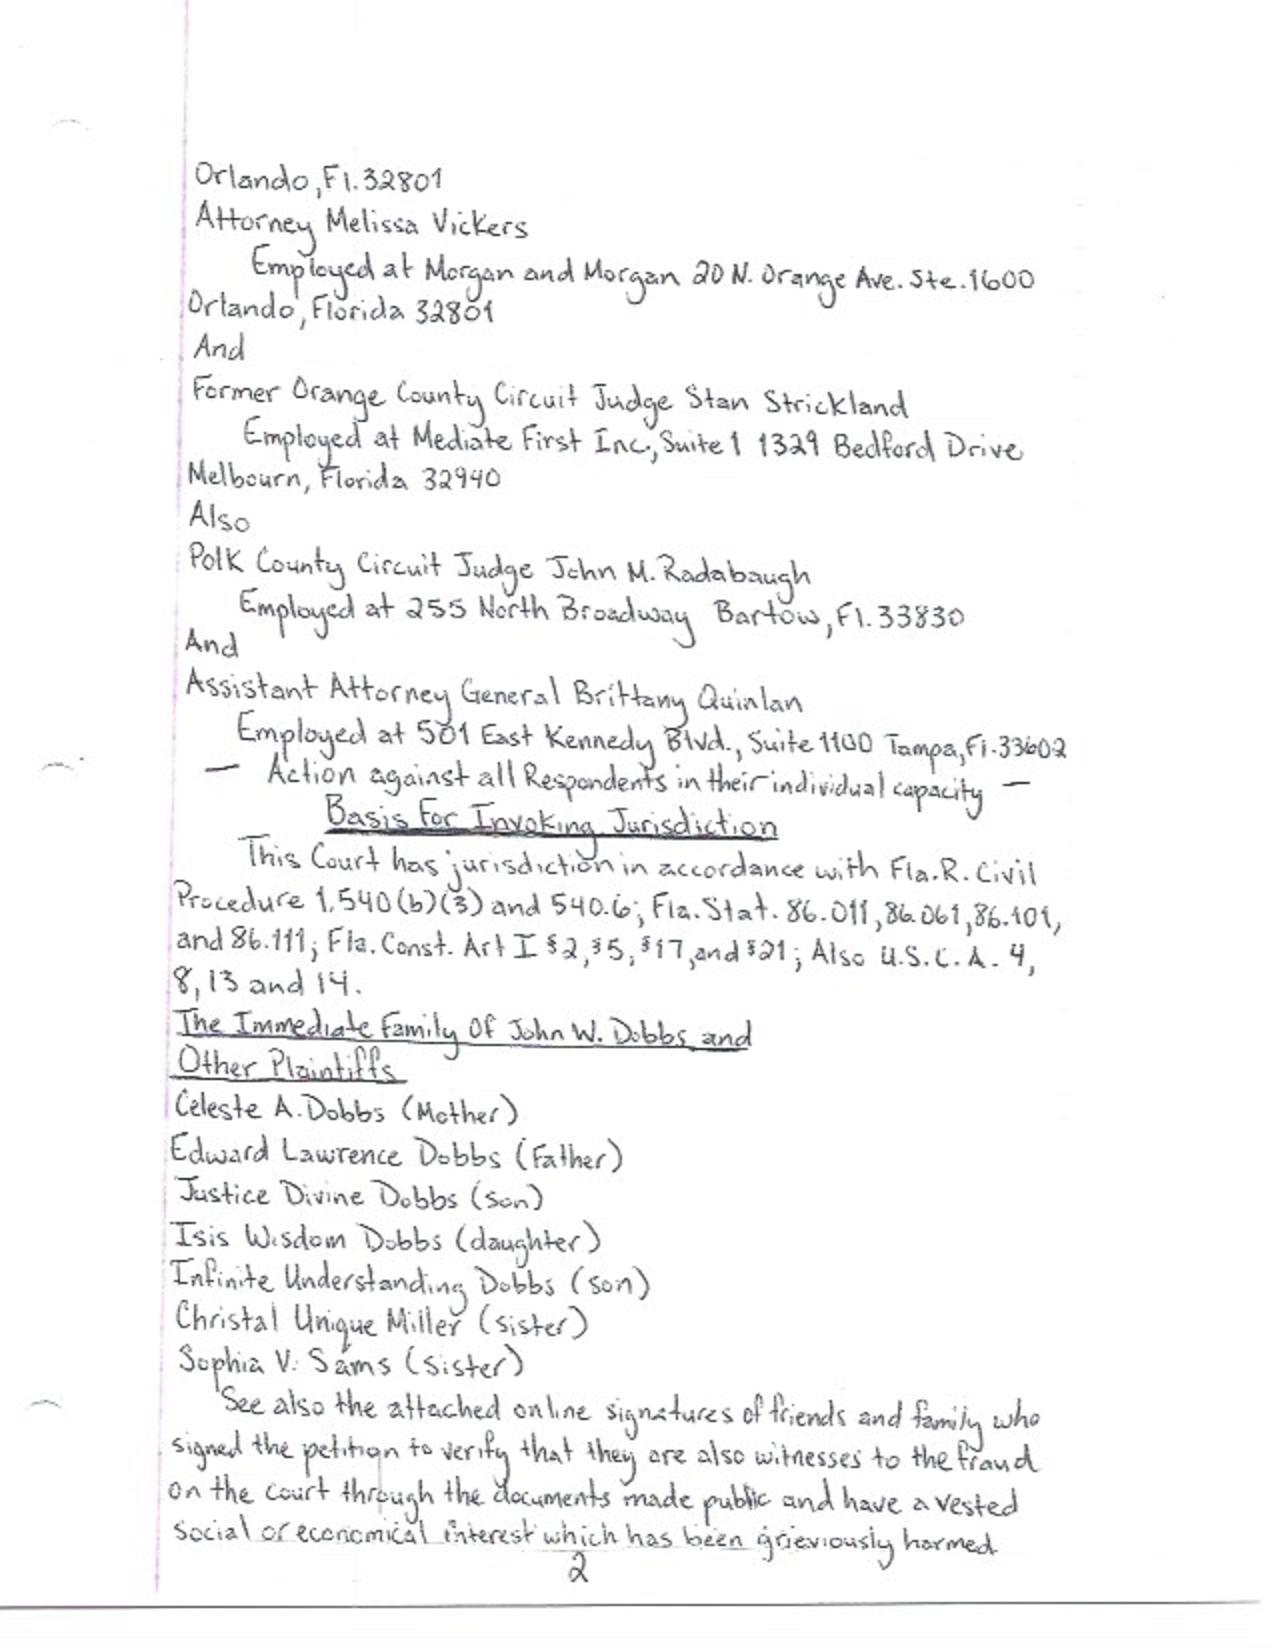 Orlando, Fl. 32801
Attorney Melissa Vickers
Employed at Morgan and Morgan 20 N. Orange Ave. Ste. 1600
Orlando, Florida 32801
And
Former Orange County Circuit Judge Stan Strickland
Employed at Mediate First Inc., Suite 1 1329 Bedford Drive
Melbourn, Florida 32940
Also
Polk County Circuit Judge John M. Radabaugh
Employed at 255 North Broadway Bartow, Fl. 33830
And
Assistant Attorney General Brittany Quinlan
Employed at 501 East Kennedy Blvd., Suite 1100 Tampa, Fl. 33602
— Action against all Respondents in their individual capacity —
Basis For Invoking Jurisdiction
This Court has jurisdiction in accordance with Fla. R. Civil
Procedure 1.540 (b)(3) and 540.6; Fla. Stat. 86.011, 86.061, 86.101,
and 86.111; Fla. Const. Art I §2, §5, §17, and §21; Also U.S.C.A. 4,
8, 13 and 14.
The Immediate Family Of John W. Dobbs and
Other Plaintiffs
Celeste A. Dobbs (Mother)
Edward Lawrence Dobbs (Father)
Justice Divine Dobbs (son)
Isis Wisdom Dobbs (daughter)
Infinite Understanding Dobbs (son)
Christal Unique Miller (sister)
Sophia V. Sams (Sister)
See also the attached online signatures of friends and family who
signed the petition to verify that they are also witnesses to the fraud
on the court through the documents made public and have a vested
social or economical interest which has been grieviously harmed
2